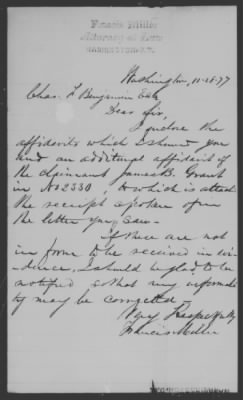 Francis Miller
Attorney at Law
WASHINGTON, D.C.
Washington, 11-28-77
Chas. F Benjamin Esq
Dear Sir,
I enclose the
affidavits which I showed you
and an additional affidavit of
the claimant James B. Grant
in No 2330 to which is attached
the receipt spoken of in
the letter you saw.
If these are not
in form to be received in evi-
dence, I should be glad to be
notified so that any informali-
ty may be corrected.
Very Respectfully
Francis Miller